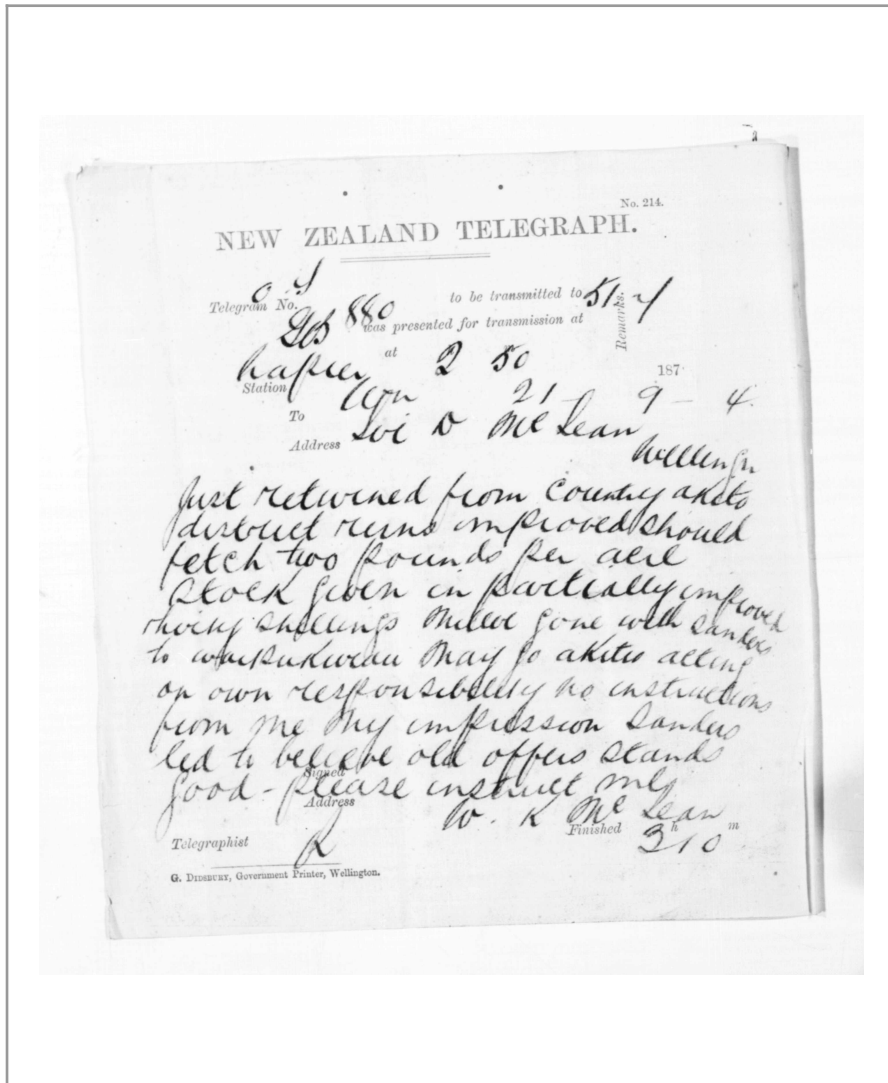 No. 214.
NEW ZEALAND TELEGRAPH.
Telegram No. 880 to be transmitted to 51
was presented for transmission at
Remarks.
Napier at 2 50
Station 187
To 21 9 - 4
Address Sir D McLean
Just returned from Country akito
district runs improved should
fetch two pounds per acre
stock given in partially improved
thirty shillings gone with Sanders
to waipukurau May go akitio acting
on own responsibility no instructions
from me My impression Sanders
led to believe old offers stands
good - please instruct me
Signed
Address W. K McLean
Finished 3h 10m
Telegraphist
G. DIDSBURY, Government Printer, Wellington.